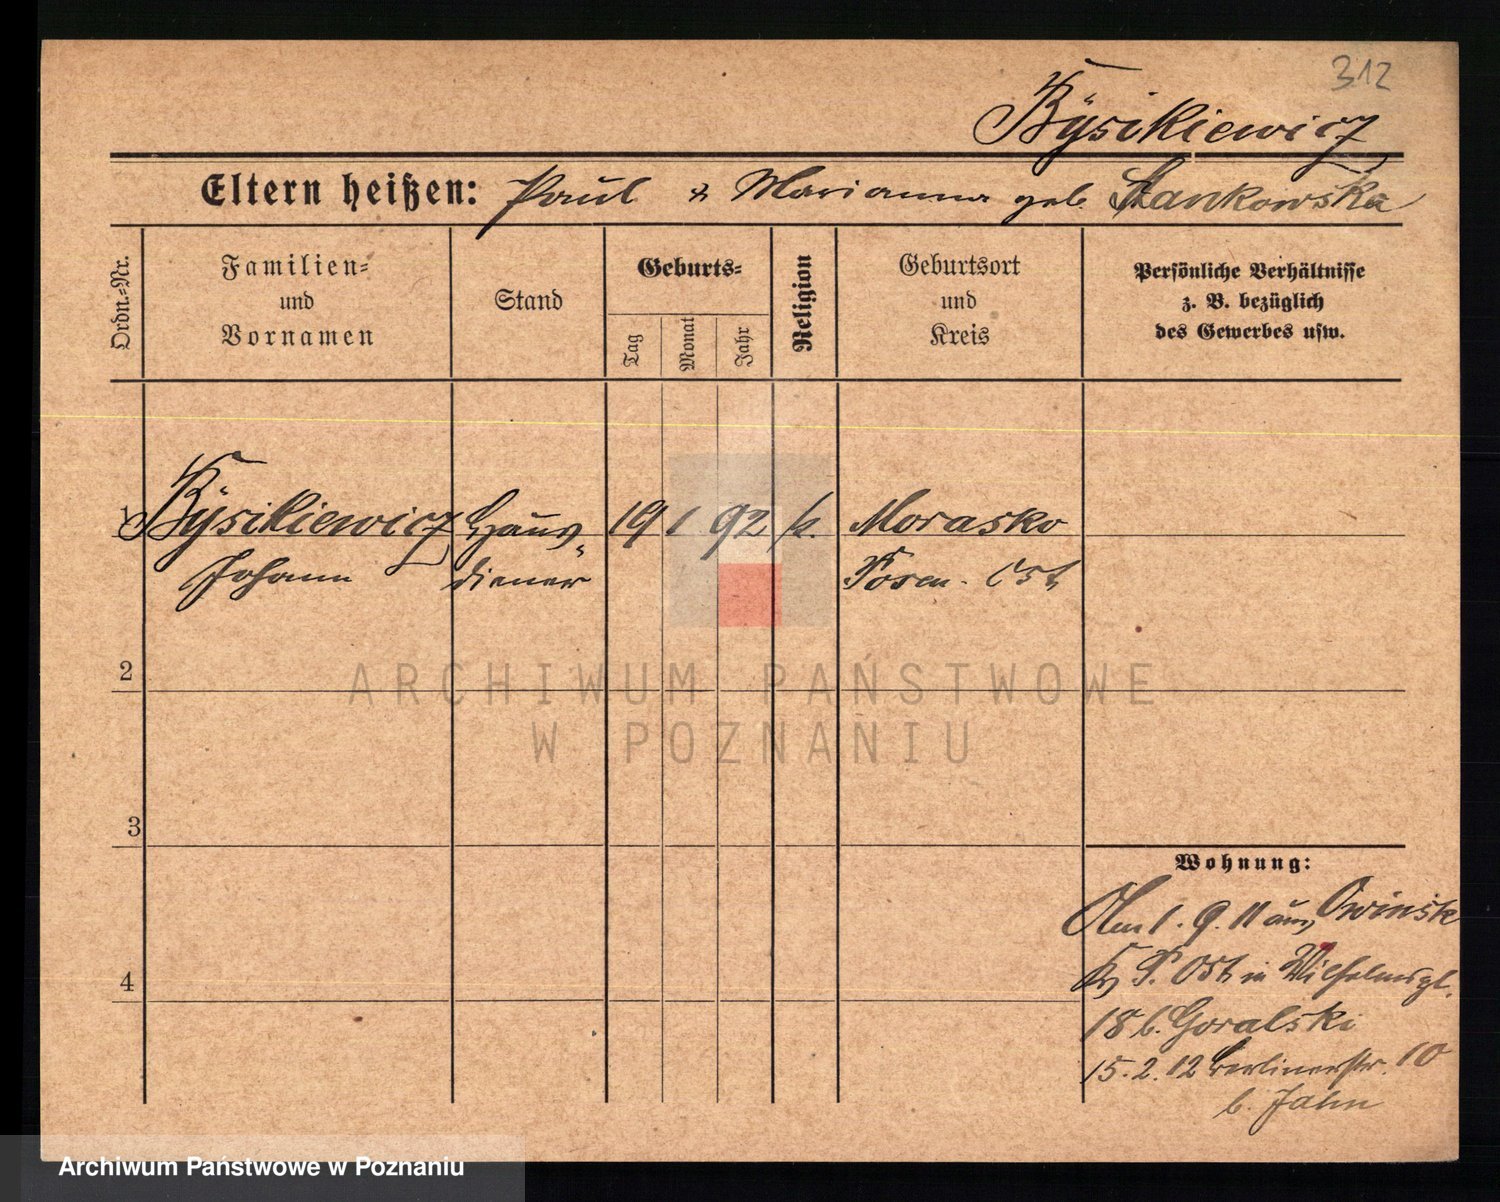 312
Bysikiewicz
Eltern heißen: Paul & Marianna geb. Stankowska
Ordn.-Nr.
Familien-
und
Vornamen
Stand
Geburts-
Tag
Monat
Jahr
Religion
Geburtsort
und
Kreis
Persönliche Verhältnisse
z. B. bezüglich
des Gewerbes usw.
1 Bysikiewicz Haus- 19 1 92 k. Morasko
Johann diener Posen. Ost
2
ARCHIWUM PAŃSTWOWE
W POZNANIU
3
Wohnung:
1. 9. 11 aus Owinsk
4
P. Ost in Wilhelmspl.
18 b. Goralski
15. 2. 12 Berlinerstr. 10
b. Jahn
Archiwum Państwowe w Poznaniu